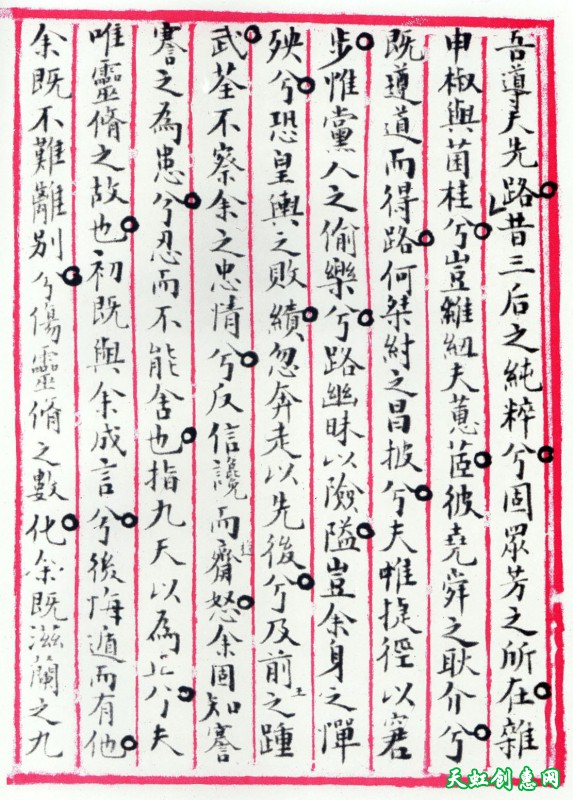 吾導夫先路昔三后之純粹兮固眾芳之所在雜
申椒與菌桂兮豈維紉夫蕙茝彼堯舜之耿介兮
既遵道而得路何桀紂之昌披兮夫唯捷徑以窘
步惟黨人之偷樂兮路幽昧以險隘豈余身之憚
殃兮恐皇輿之敗績忽奔走以先後兮及前王之踵
武荃不察余之忠情兮反信讒而齌怒余固知謇
謇之為患兮忍而不能舍也指九天以為正兮夫
唯靈脩之故也初既與余成言兮後悔遁而有他
余既不難離别兮傷靈脩之數化余既滋蘭之九
天虹创惠网